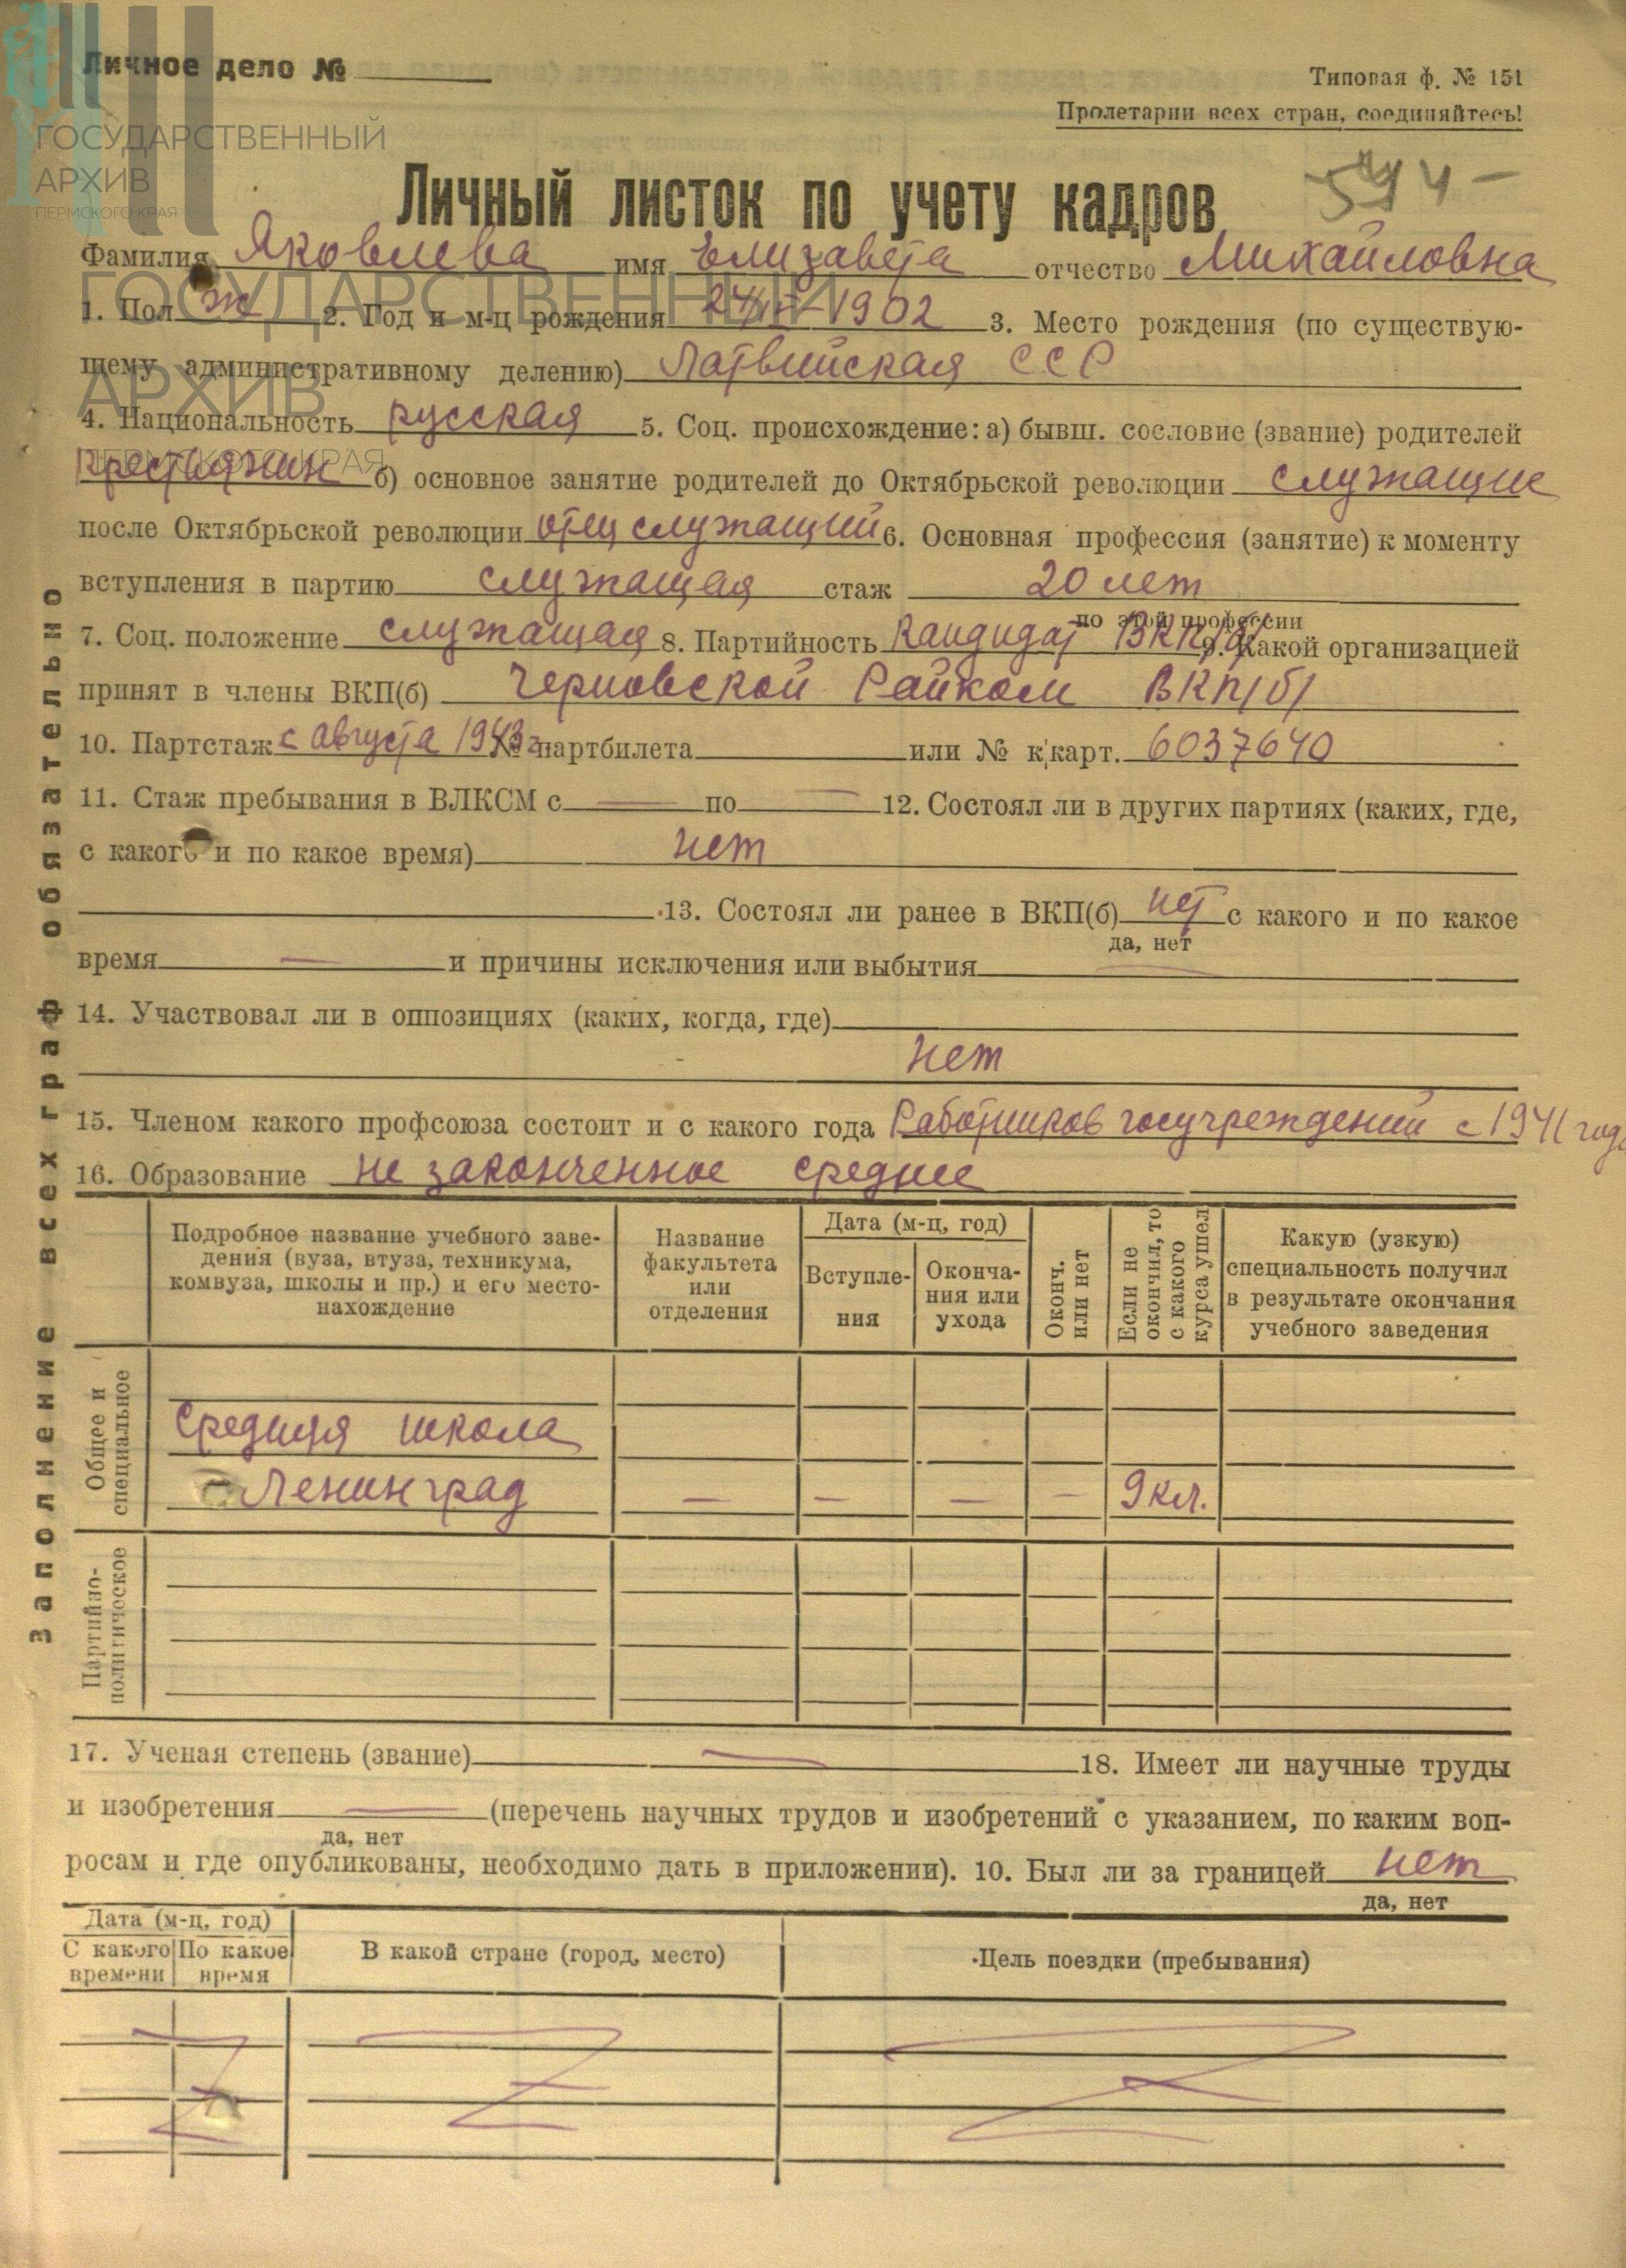 Личное дело №
Типовая ф. № 151
Пролетарии всех стран, соединяйтесь!
ГОСУДАРСТВЕННЫЙ
АРХИВ
ПЕРМСКОГО КРАЯ
Личный листок по учету кадров
Фамилия Яковлева имя Елизавета отчество Михайловна
ГОСУДАРСТВЕННЫЙ
1. Пол ж 2. Год и м-ц рождения 1902 3. Место рождения (по существую-
щему административному делению) Латвийская ССР
АРХИВ
4. Национальность русская 5. Соц. происхождение: а) бывш. сословие (звание) родителей
ПЕРМСКОГО КРАЯ
крестьянин б) основное занятие родителей до Октябрьской революции служащие
после Октябрьской революции отец служащий 6. Основная профессия (занятие) к моменту
вступления в партию служащая стаж 20 лет
по этой профессии
7. Соц. положение служащая 8. Партийность Кандидат ВКП(б) 9. Какой организацией
принят в члены ВКП(б) Черновской Райком ВКП(б)
10. Партстаж с августа 1943 г № партбилета или № к/карт. 6037640
11. Стаж пребывания в ВЛКСМ с — по — 12. Состоял ли в других партиях (каких, где,
с какого и по какое время) нет
13. Состоял ли ранее в ВКП(б) нет с какого и по какое
да, нет
время — и причины исключения или выбытия —
14. Участвовал ли в оппозициях (каких, когда, где)
нет
15. Членом какого профсоюза состоит и с какого года Работников госучреждений с 1941 года
16. Образование не законченное среднее
Подробное название учебного заве-
дения (вуза, втуза, техникума,
комвуза, школы и пр.) и его место-
нахождение
Название
факультета
или
отделения
Дата (м-ц, год)
Вступле-
ния
Оконча-
ния или
ухода
Оконч.
или нет
Если не
окончил, то
с какого
курса ушел
Какую (узкую)
специальность получил
в результате окончания
учебного заведения
Общее и
специальное
Средняя школа
Ленинград — — — — 9 кл.
Партийно-
политическое
17. Ученая степень (звание) — 18. Имеет ли научные труды
и изобретения — (перечень научных трудов и изобретений с указанием, по каким воп-
да, нет
росам и где опубликованы, необходимо дать в приложении). 10. Был ли за границей нет
да, нет
Дата (м-ц, год)
С какого времени
По какое время
В какой стране (город, место)
Цель поездки (пребывания)
Заполнение всех граф обязательно